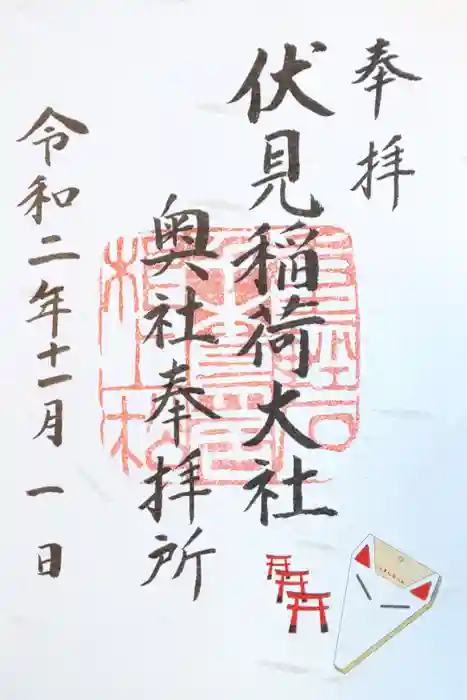 奉拝
伏見稲荷大社
奥社奉拝所
令和二年十一月一日